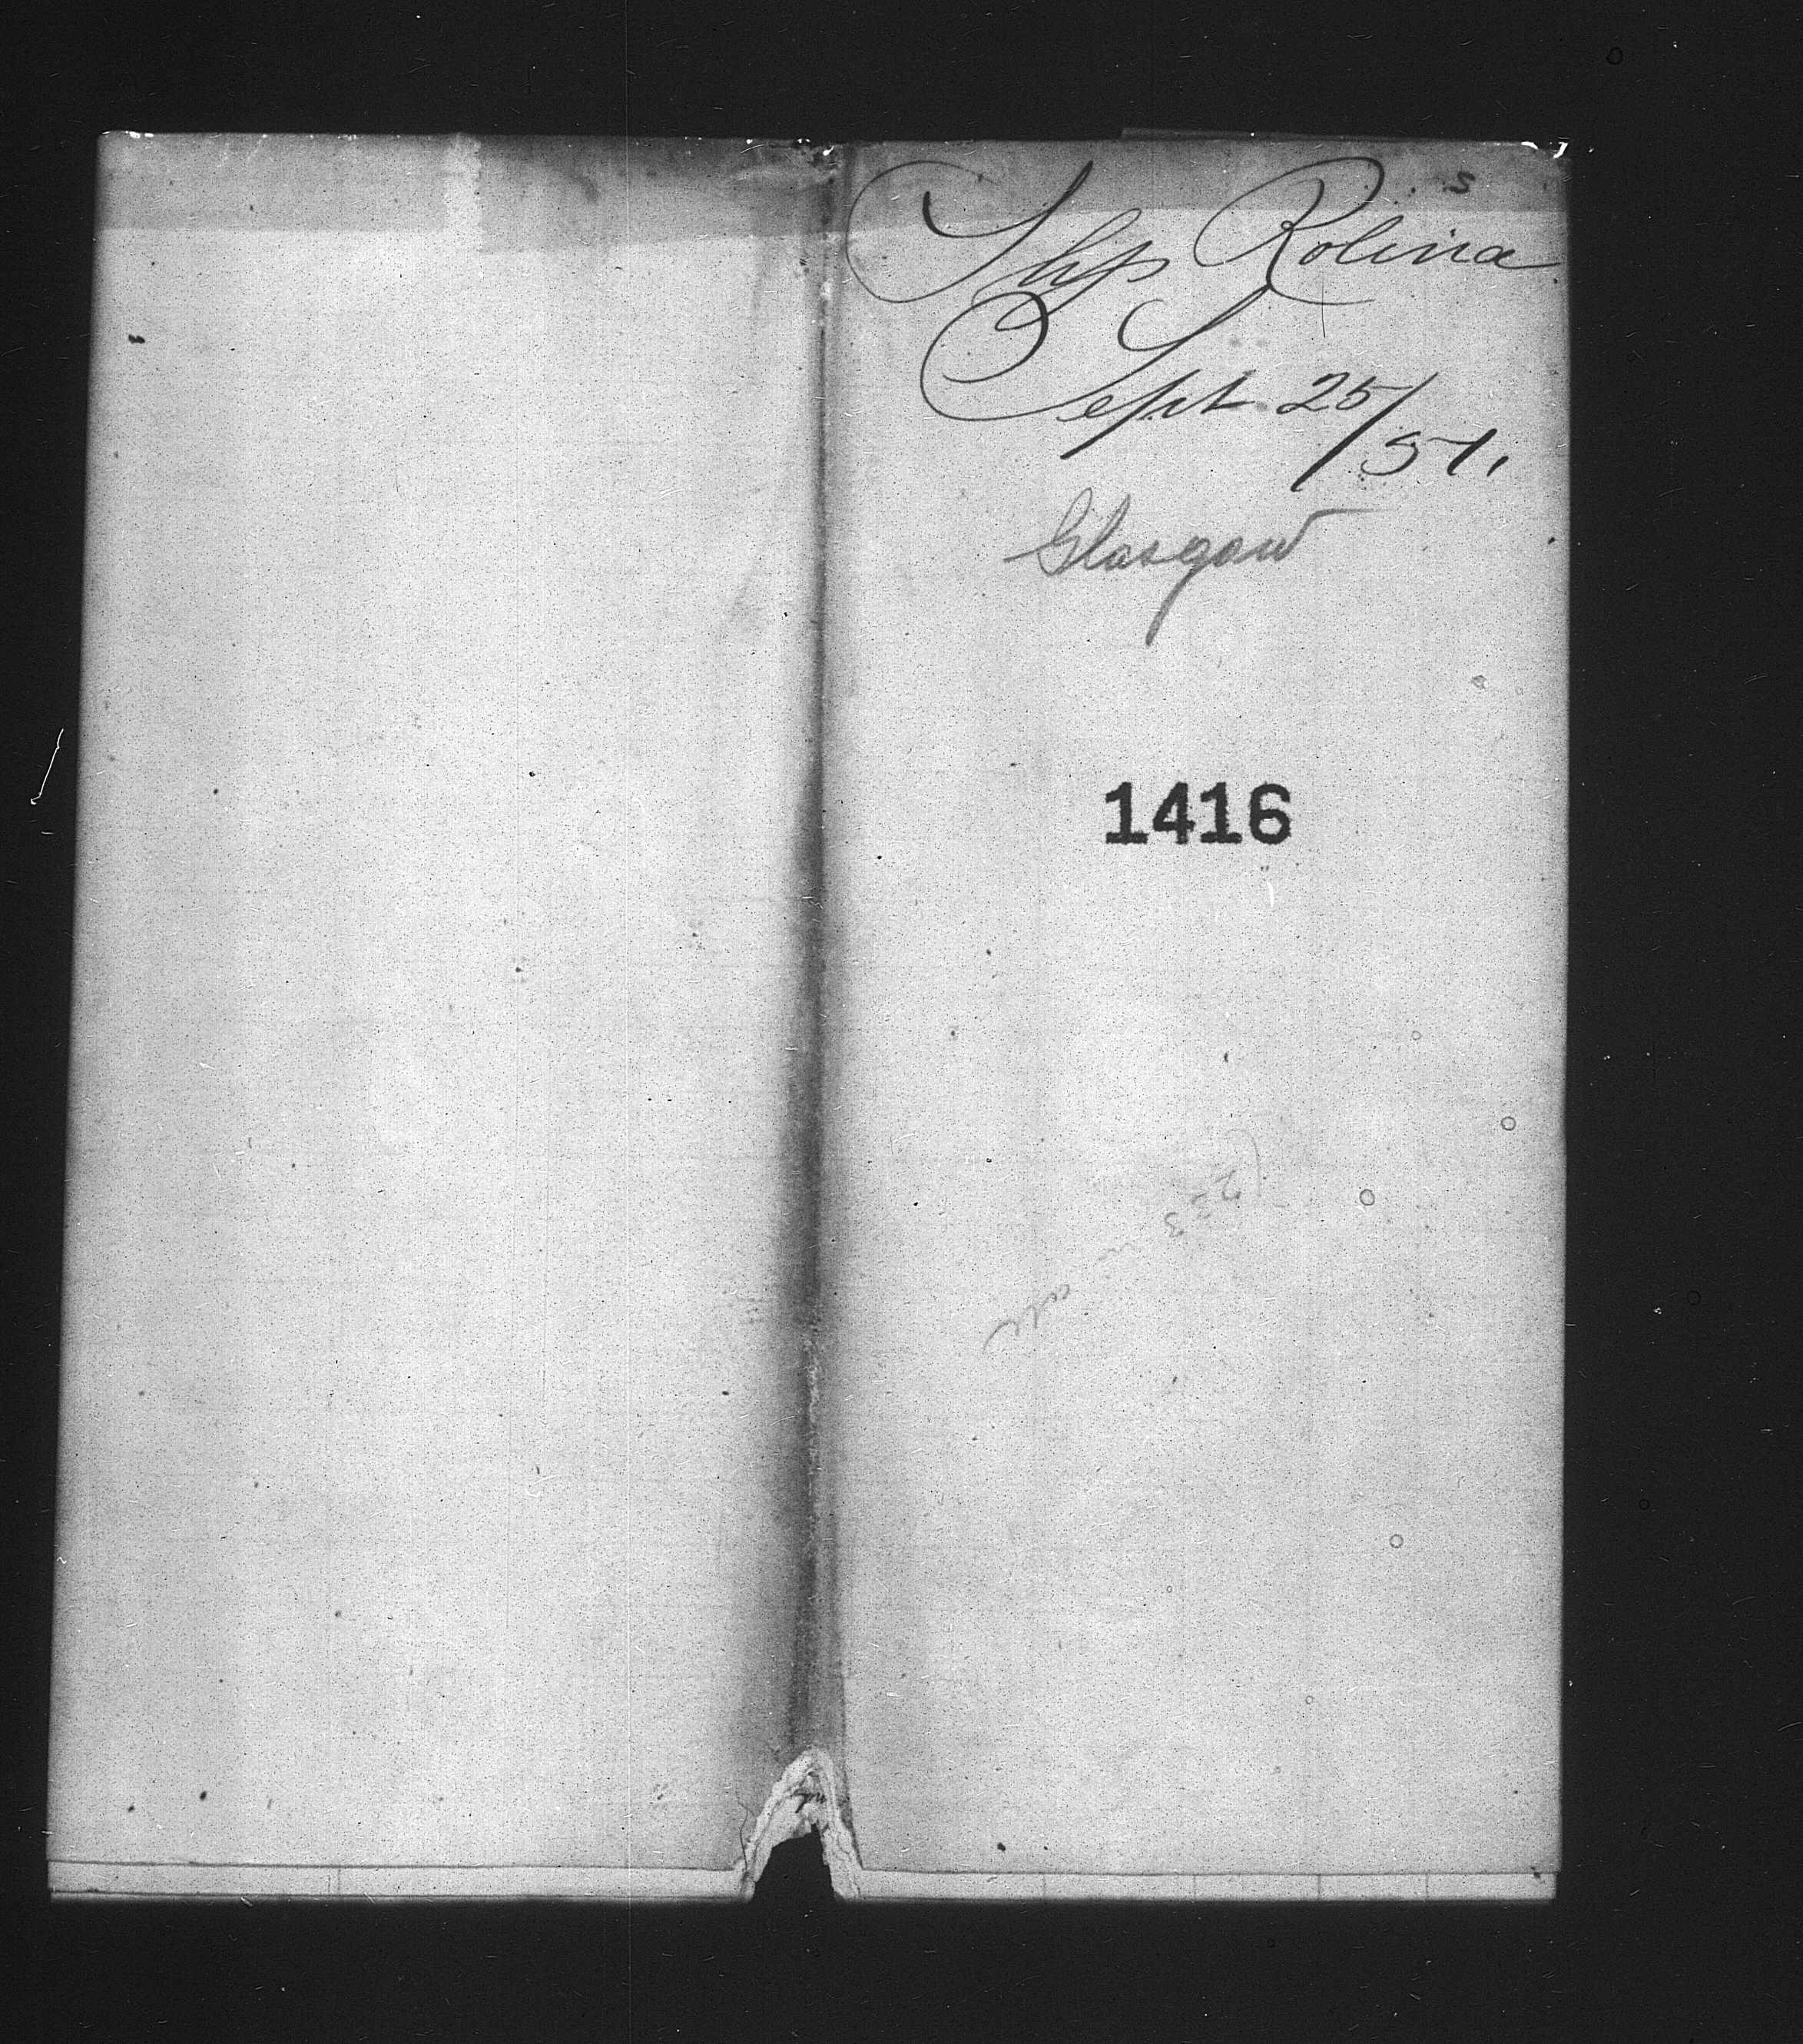 Ship Rolina
Sept 25/
/51.
Glasgow
1416